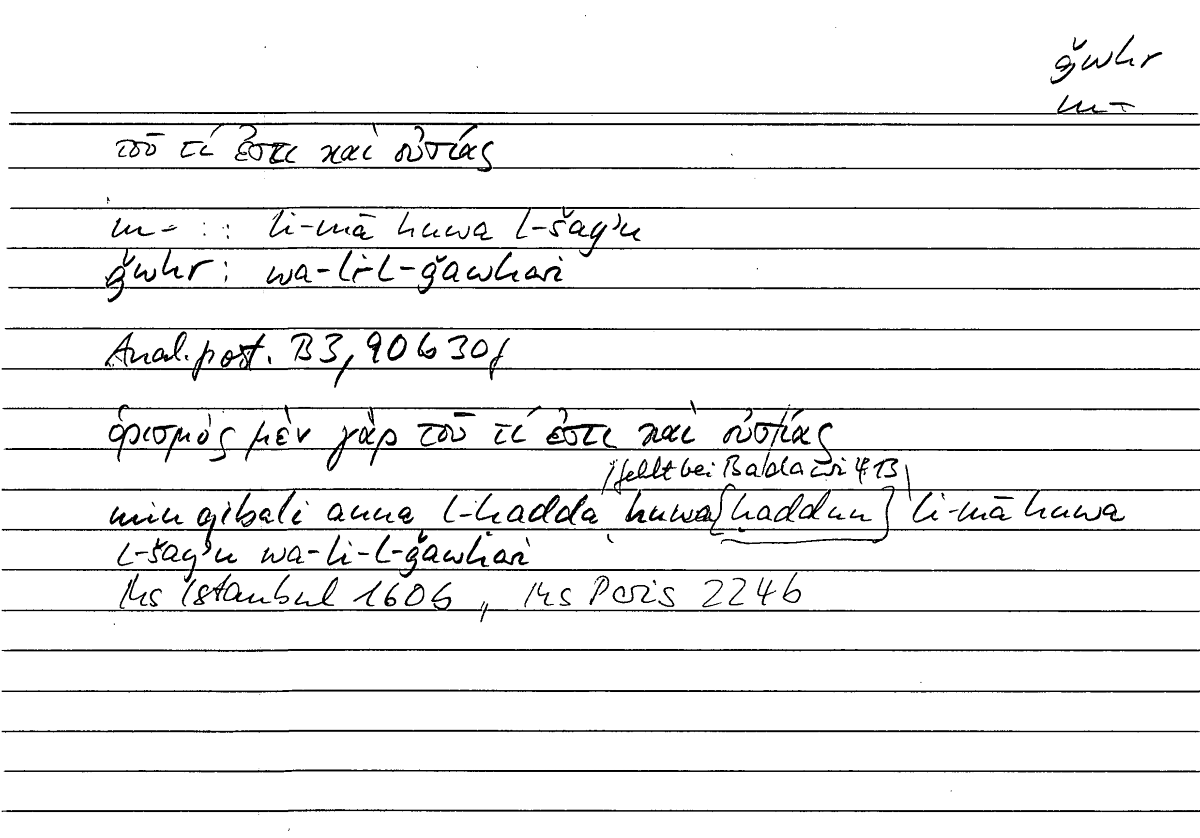 ǧwhr
m-
τοῦ τί ἐστι καὶ οὐσίας
m- : : li-mā huwa l-šay'u
ǧwhr : wa-li-l-ǧawhari
Anal. post. B3, 90b30f
ὁρισμὸς μὲν γὰρ τοῦ τί ἐστι καὶ οὐσίας
fehlt bei Badawī 413
min qibali anna l-ḥadda huwa [ḥaddun] li-mā huwa
l-šay'u wa-li-l-ǧawhari
Ms Istanbul 160b, Ms Paris 224b